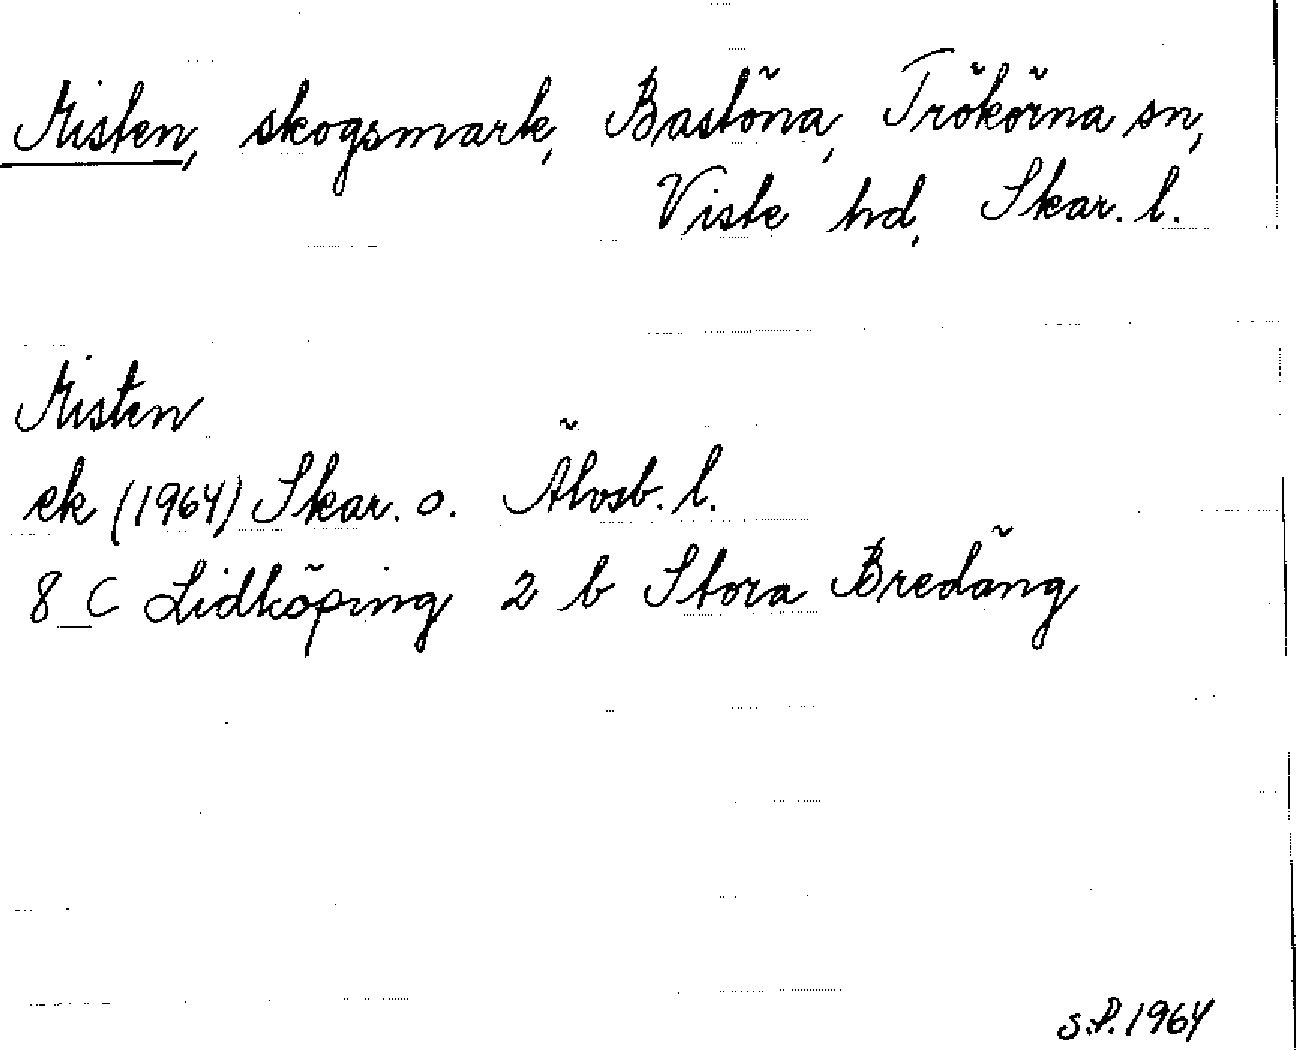 skogsmark, Bastöna, Trökörna sn,
Viste hd, Skar. l.
ek (1964) Skar. o. Älvsb. l.
8 C Lidköping 2 b Stora Bredäng
S.P. 1964